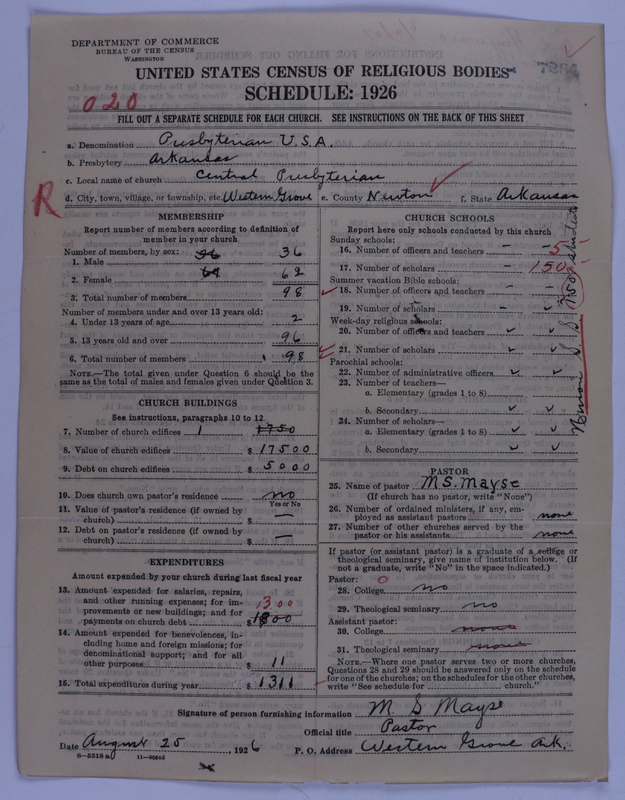 DEPARTMENT OF COMMERCE
BUREAU OF THE CENSUS
WASHINGTON
UNITED STATES CENSUS OF RELIGIOUS BODIES
SCHEDULE: 1926
020
FILL OUT A SEPARATE SCHEDULE FOR EACH CHURCH. SEE INSTRUCTIONS ON THE BACK OF THIS SHEET
a. Denomination Presbyterian U.S.A.
b. Presbytery Arkansas
c. Local name of church Central Presbyterian
R d. City, town, village, or township, etc. Western Grove e. County Newton f. State Arkansas
MEMBERSHIP
Report number of members according to definition of
member in your church
Number of members, by sex:
1. Male 36
2. Female 64 62
3. Total number of members 98
Number of members under and over 13 years old:
4. Under 13 years of age 2
5. 13 years old and over 96
6. Total number of members 98
NOTE.—The total given under Question 6 should be the
same as the total of males and females given under Question 3.
CHURCH BUILDINGS
See instructions, paragraphs 10 to 12
7. Number of church edifices 1 1750
8. Value of church edifices $ 17500
9. Debt on church edifices $ 5000
10. Does church own pastor's residence no
Yes or No
11. Value of pastor's residence (if owned by
church) $ —
12. Debt on pastor's residence (if owned by
church) $ —
EXPENDITURES
Amount expended by your church during last fiscal year
13. Amount expended for salaries, repairs,
and other running expenses; for im-
provements or new buildings; and for
payments on church debt $ 1300
14. Amount expended for benevolences, in-
cluding home and foreign missions; for
denominational support; and for all
other purposes $ 11
15. Total expenditures during year $ 1311
CHURCH SCHOOLS
Report here only schools conducted by this church
Sunday schools:
16. Number of officers and teachers – – 5
17. Number of scholars – – 150
Summer vacation Bible schools:
18. Number of officers and teachers – –
19. Number of scholars –
Week-day religious schools:
20. Number of officers and teachers
21. Number of scholars
Parochial schools:
22. Number of administrative officers
23. Number of teachers—
a. Elementary (grades 1 to 8)
b. Secondary
24. Number of scholars—
a. Elementary (grades 1 to 8)
b. Secondary
PASTOR
25. Name of pastor M S. Mayse
(If church has no pastor, write "None")
26. Number of ordained ministers, if any, em-
ployed as assistant pastors none
27. Number of other churches served by the
pastor or his assistants none
If pastor (or assistant pastor) is a graduate of a college or
theological seminary, give name of institution below. (If
not a graduate, write "No" in the space indicated.)
Pastor: 0
28. College no
29. Theological seminary no
Assistant pastor:
30. College none
31. Theological seminary none
NOTE.—Where one pastor serves two or more churches,
Questions 28 and 29 should be answered only on the schedule
for one of the churches; on the schedules for the other churches,
write "See schedule for church."
Signature of person furnishing information M S Mayse
Official title Pastor
Date August 25, 1926 P. O. Address Western Grove Ark.
8-5318 a